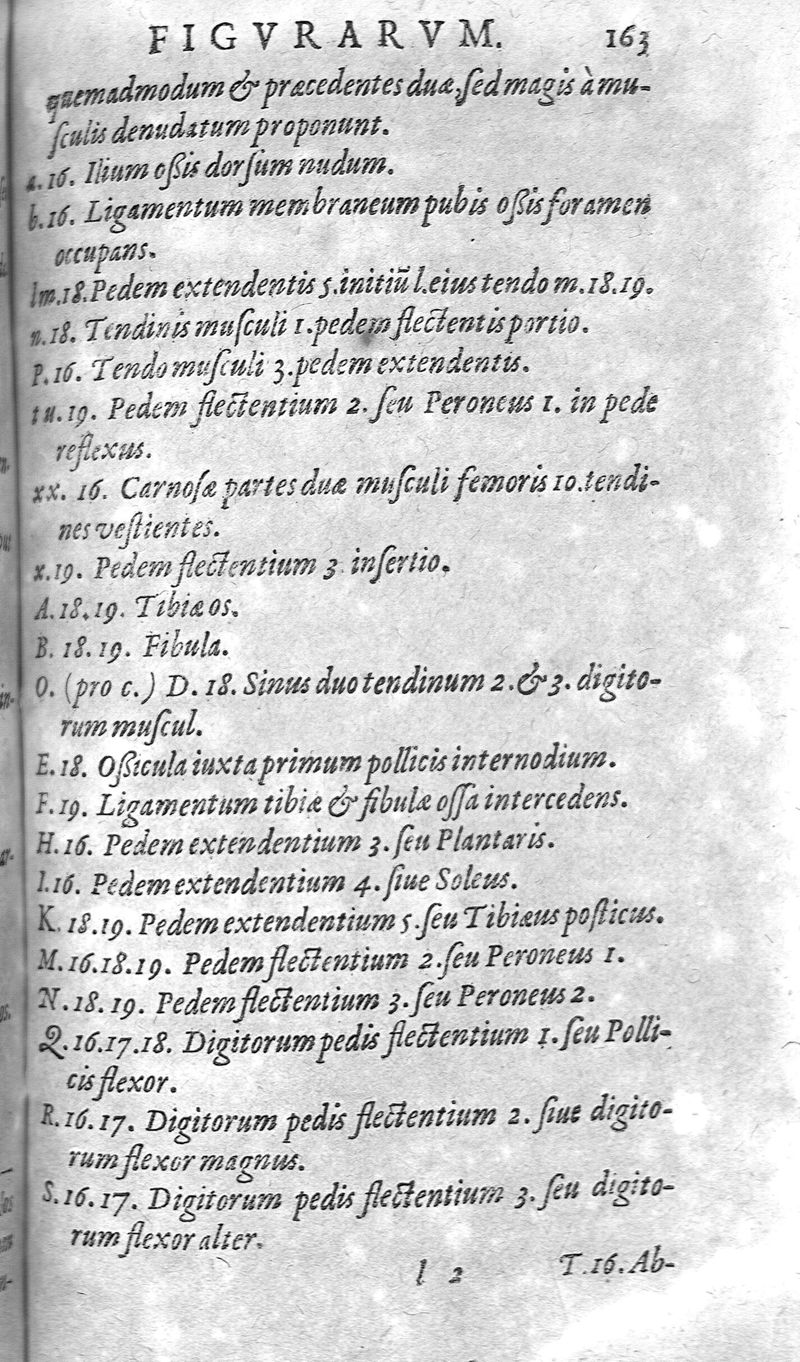 FIGVRARVM. 163
quemadmodum & præcedentes duæ, sed magis à mu-
sculis denudatum proponunt.
a.16. Ilium oßis dorsum nudum.
b.16. Ligamentum membraneum pubis oßis foramen
occupans.
lm.18. Pedem extendentis 5. initiũ l. eius tendo m.18.19.
n.18. Tendinis musculi 1. pedem flectentis portio.
P.16. Tendo musculi 3. pedem extendentis.
tu.19. Pedem flectentium 2. seu Peroneus 1. in pede
reflexus.
xx. 16. Carnosæ partes duæ musculi femoris 10. tendi-
nes vestientes.
x.19. Pedem flectentium 3 insertio.
A.18.19. Tibiæ os.
B. 18. 19. Fibula.
O. (pro c.) D. 18. Sinus duo tendinum 2. & 3. digito-
rum muscul.
E.18. Oßicula iuxta primum pollicis internodium.
F.19. Ligamentum tibiæ & fibulæ ossa intercedens.
H.16. Pedem extendentium 3. seu Plantaris.
I.16. Pedem extendentium 4. siue Soleus.
K.18.19. Pedem extendentium 5. seu Tibiæus posticus.
M.16.18.19. Pedem flectentium 2. seu Peroneus 1.
N.18.19. Pedem flectentium 3. seu Peroneus 2.
Q.16.17.18. Digitorum pedis flectentium 1. seu Polli-
cis flexor.
R.16.17. Digitorum pedis flectentium 2. siue digito-
rum flexor magnus.
S.16.17. Digitorum pedis flectentium 3. seu digito-
rum flexor alter.
l 2 T.16. Ab-